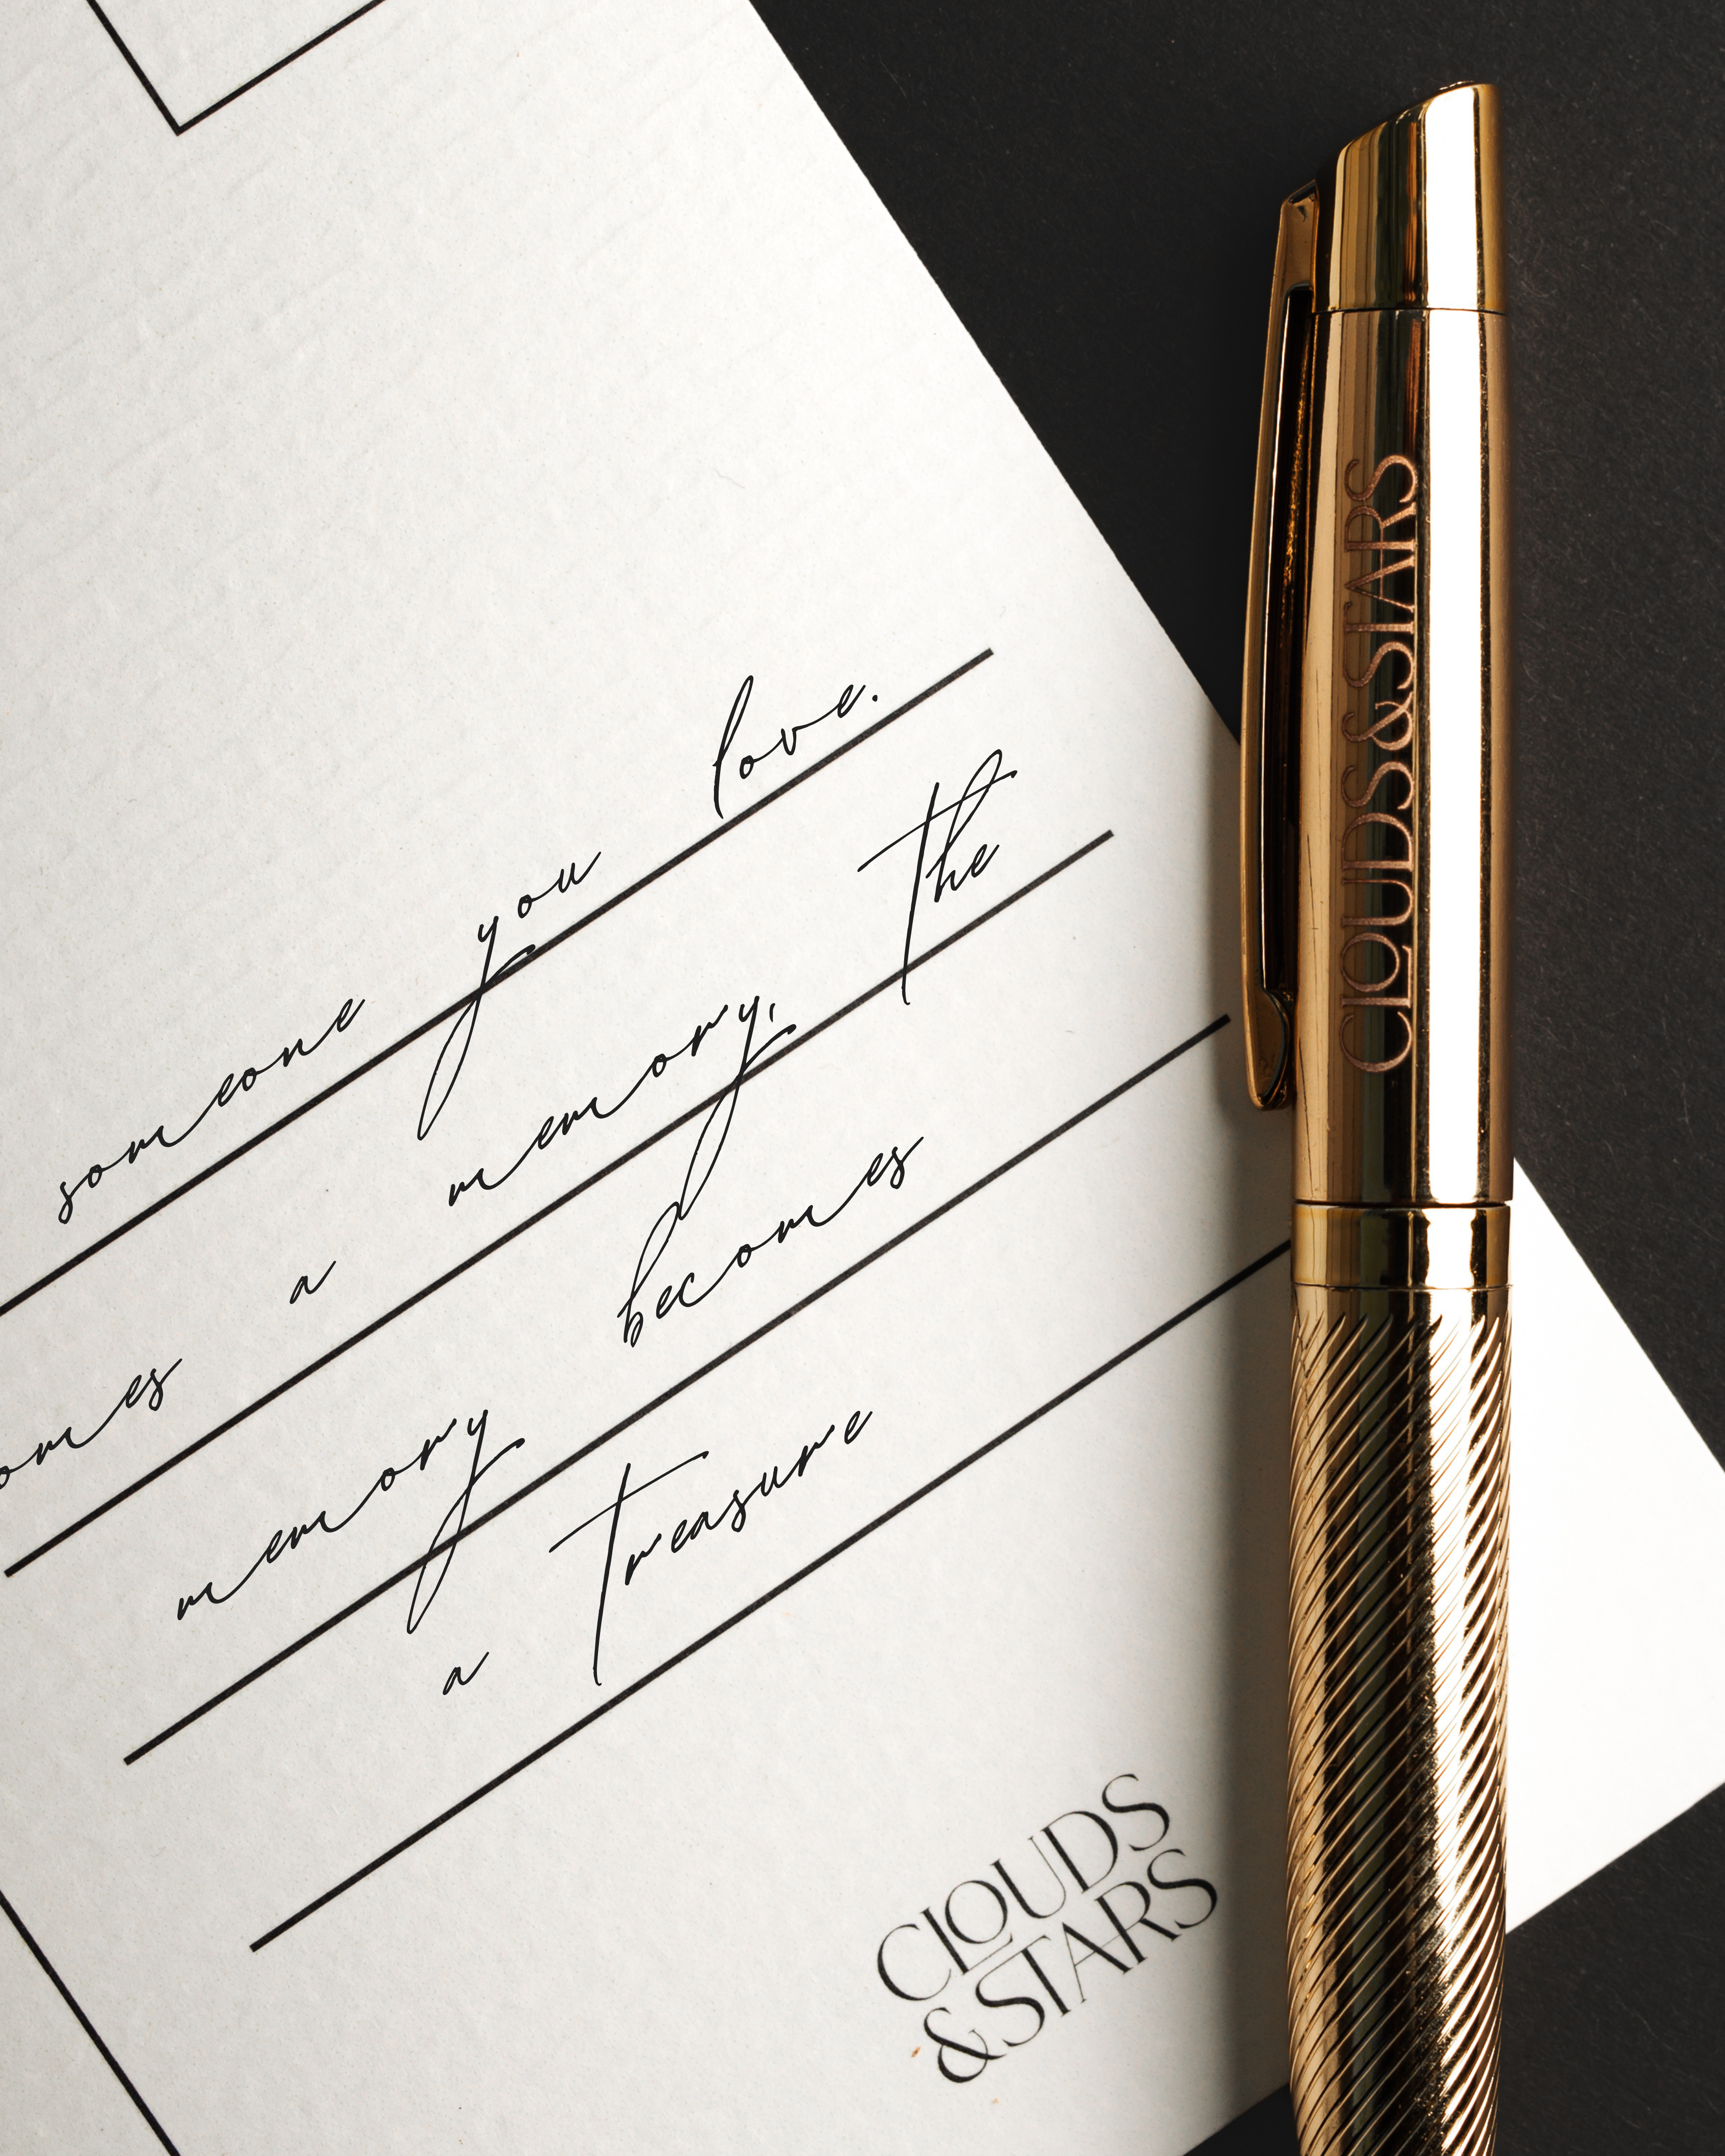 someone you love.
omes a memory, the
memory becomes
a treasure
CLOUDS
& STARS
CLOUDS & STARS